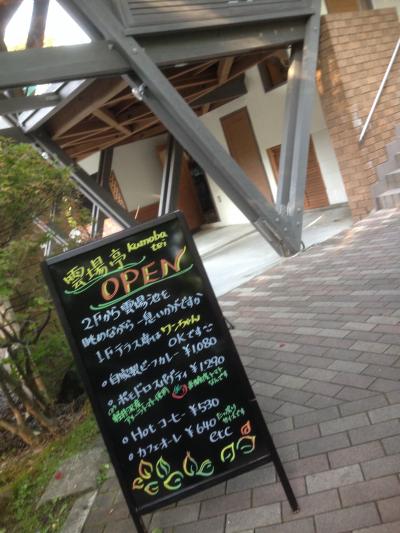 雲場亭 kumoba tei
OPEN
2Fから雲場池を
眺めながら一息いかがですか
1Fテラス席は ワンちゃん
OKです
自家製ビーフカレー ¥1080
ポモドロスパゲティ ¥1290
Hot コーヒー ¥530
カフェオーレ ¥640 たっぷりサイズです
etc